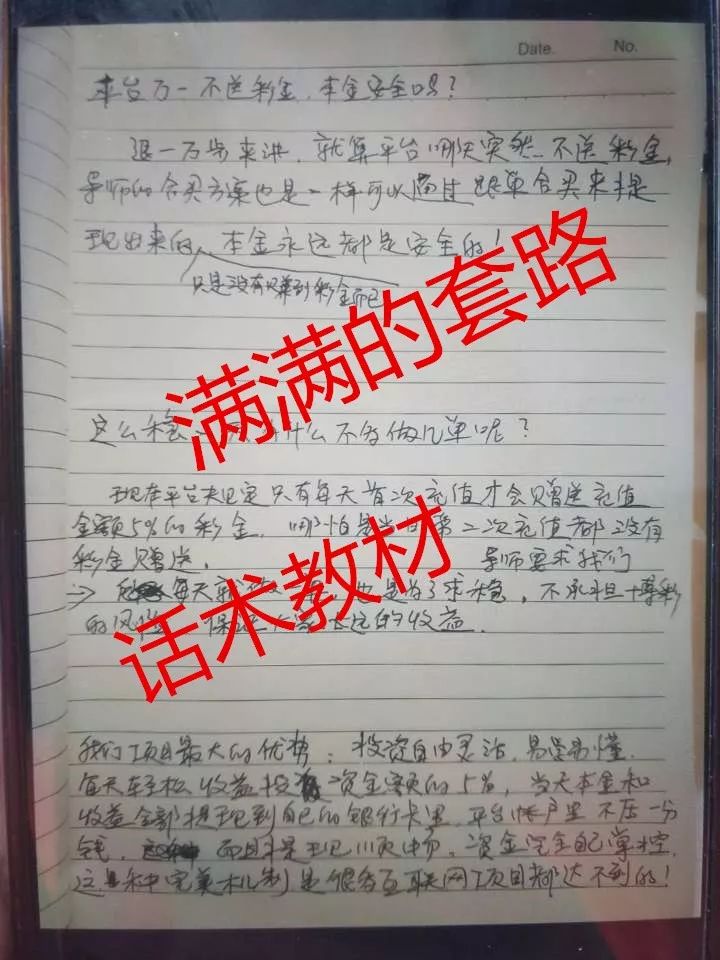 Date. No.
平台万一不送彩金，本金安全吗？
退一万步来讲，就算平台哪天突然不送彩金，
导师的合买方案也是一样可以通过跟单合买来提
现出来的，本金永远都是安全的！
只是没有赚到彩金而已
满满的套路
这么稳 什么不多做几单呢？
现在平台规定只有每天首次充值才会赠送充值
金额5%的彩金，哪怕是当 第二次充值都没有
彩金赠送， 导师要求我们
=> 每天 ，也是为了求稳，不承担 博彩
的风险 的收益．
话术教材
我们项目最大的优势：投资自由灵活，易学易懂．
每天轻松收益投资金额的5%，当天本金和
收益全部提现到自己的银行卡里，平台帐户里不压一分
钱， 而且提现顺畅，资金完全自己掌控，
这种完美机制是很多互联网项目都达不到的！